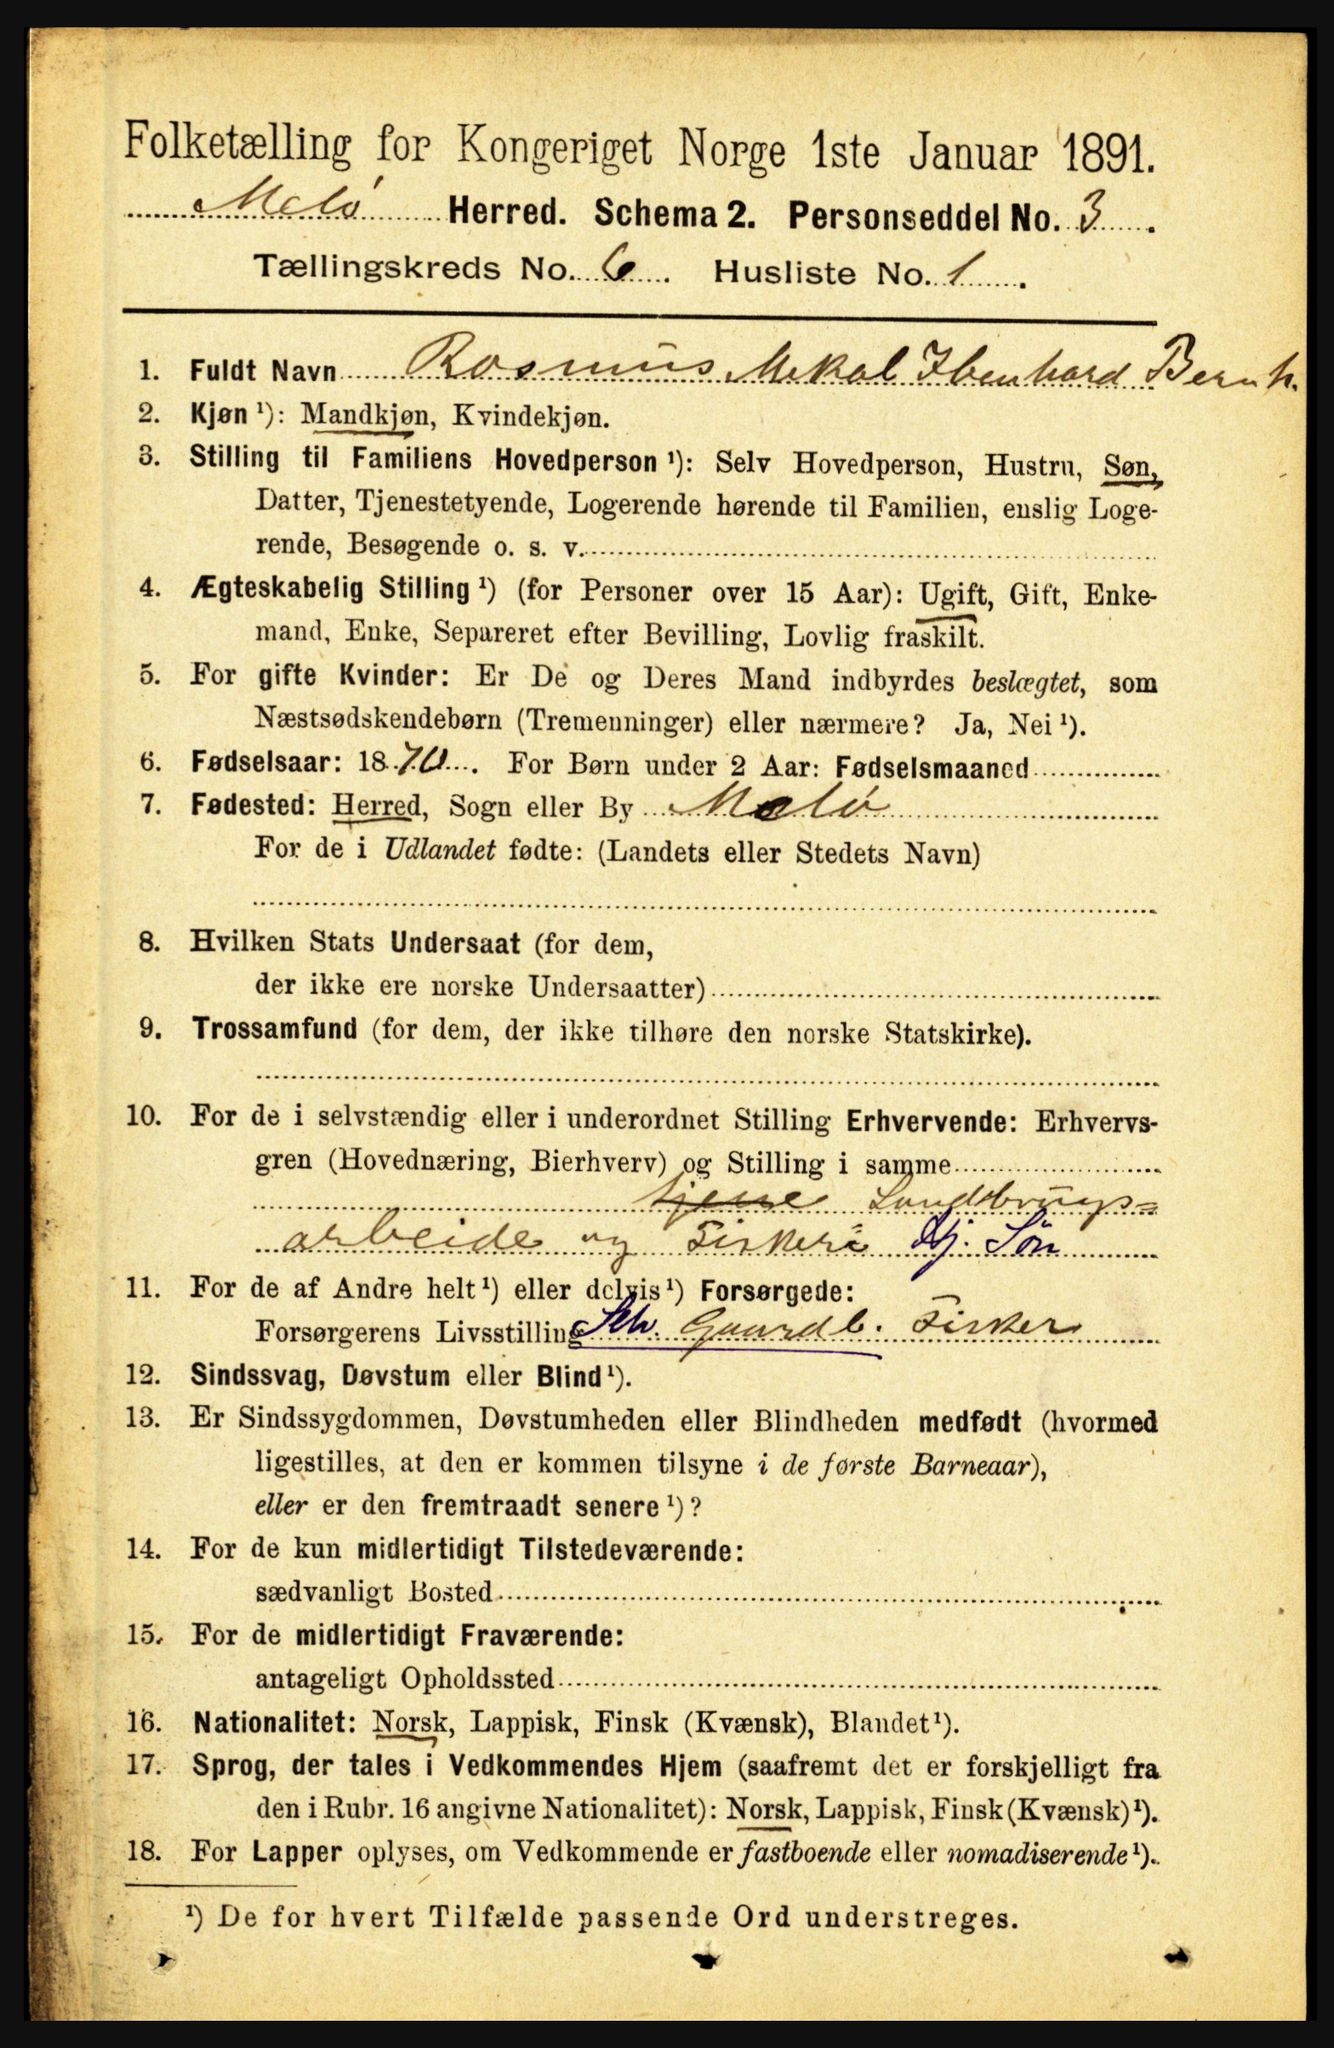 Folketælling for Kongeriget Norge 1ste Januar 1891.
Melø Herred. Schema 2. Personseddel No. 3.
Tællingskreds No. 6. Husliste No. 1.
1. Fuldt Navn Rasmus Mekal Ibenhard Bernh.
2. Kjøn ¹): Mandkjøn, Kvindekjøn.
3. Stilling til Familiens Hovedperson ¹): Selv Hovedperson, Hustru, Søn,
Datter, Tjenestetyende, Logerende hørende til Familien, enslig Loge-
rende, Besøgende o. s. v.
4. Ægteskabelig Stilling ¹) (for Personer over 15 Aar): Ugift, Gift, Enke-
mand, Enke, Separeret efter Bevilling, Lovlig fraskilt.
5. For gifte Kvinder: Er De og Deres Mand indbyrdes beslægtet, som
Næstsødskendebørn (Tremenninger) eller nærmere? Ja, Nei ¹).
6. Fødselsaar: 1870. For Børn under 2 Aar: Fødselsmaaned
7. Fødested: Herred, Sogn eller By Melø
For de i Udlandet fødte: (Landets eller Stedets Navn)
8. Hvilken Stats Undersaat (for dem,
der ikke ere norske Undersaatter)
9. Trossamfund (for dem, der ikke tilhøre den norske Statskirke).
10. For de i selvstændig eller i underordnet Stilling Erhvervende: Erhvervs-
gren (Hovednæring, Bierhverv) og Stilling i samme
tjene Landbrugs=
arbeide og Fiskeri Hj. Søn
11. For de af Andre helt ¹) eller delvis ¹) Forsørgede:
Forsørgerens Livsstilling Selv. Gaardb. Fisker
12. Sindssvag, Døvstum eller Blind ¹).
13. Er Sindssygdommen, Døvstumheden eller Blindheden medfødt (hvormed
ligestilles, at den er kommen tilsyne i de første Barneaar),
eller er den fremtraadt senere ¹)?
14. For de kun midlertidigt Tilstedeværende:
sædvanligt Bosted
15. For de midlertidigt Fraværende:
antageligt Opholdssted
16. Nationalitet: Norsk, Lappisk, Finsk (Kvænsk), Blandet ¹).
17. Sprog, der tales i Vedkommendes Hjem (saafremt det er forskjelligt fra
den i Rubr. 16 angivne Nationalitet): Norsk, Lappisk, Finsk (Kvænsk) ¹).
18. For Lapper oplyses, om Vedkommende er fastboende eller nomadiserende ¹).
¹) De for hvert Tilfælde passende Ord understreges.